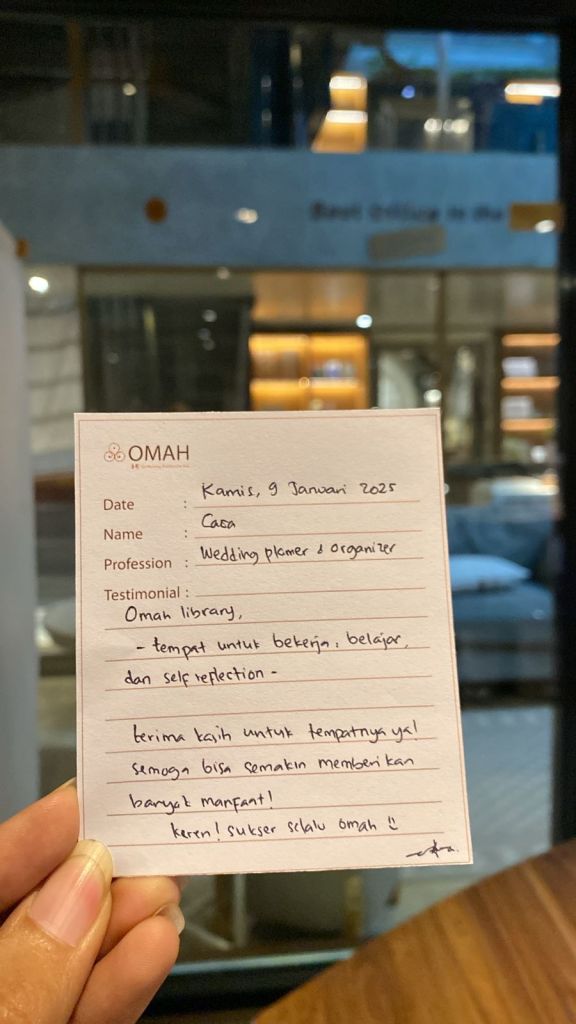 Best Office in the
OMAH
Date : Kamis, 9 Januari 2025
Name : Caca
Profession : Wedding planner & organizer
Testimonial :
Omah library,
- tempat untuk bekerja, belajar,
dan self reflection -
terima kasih untuk tempatnya ya!
semoga bisa semakin memberikan
banyak manfaat!
keren! sukses selalu omah :)